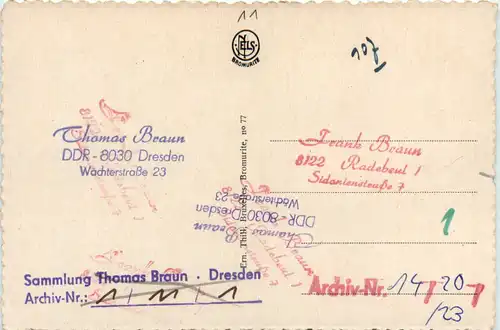 11
NELS
BROMURITE
107
Thomas Braun
DDR-8030 Dresden
Wachterstraße 23
Frank Braun
8122 Radebeul 1
Sidonienstraße 7
Ern. Thill, Bruxelles, Bromurite, no 77
Thomas Braun
DDR-8030 Dresden
Wachterstraße 23
1
Sammlung Thomas Braun · Dresden
Archiv-Nr.: 1/11/1
Archiv-Nr. 14/20
/23